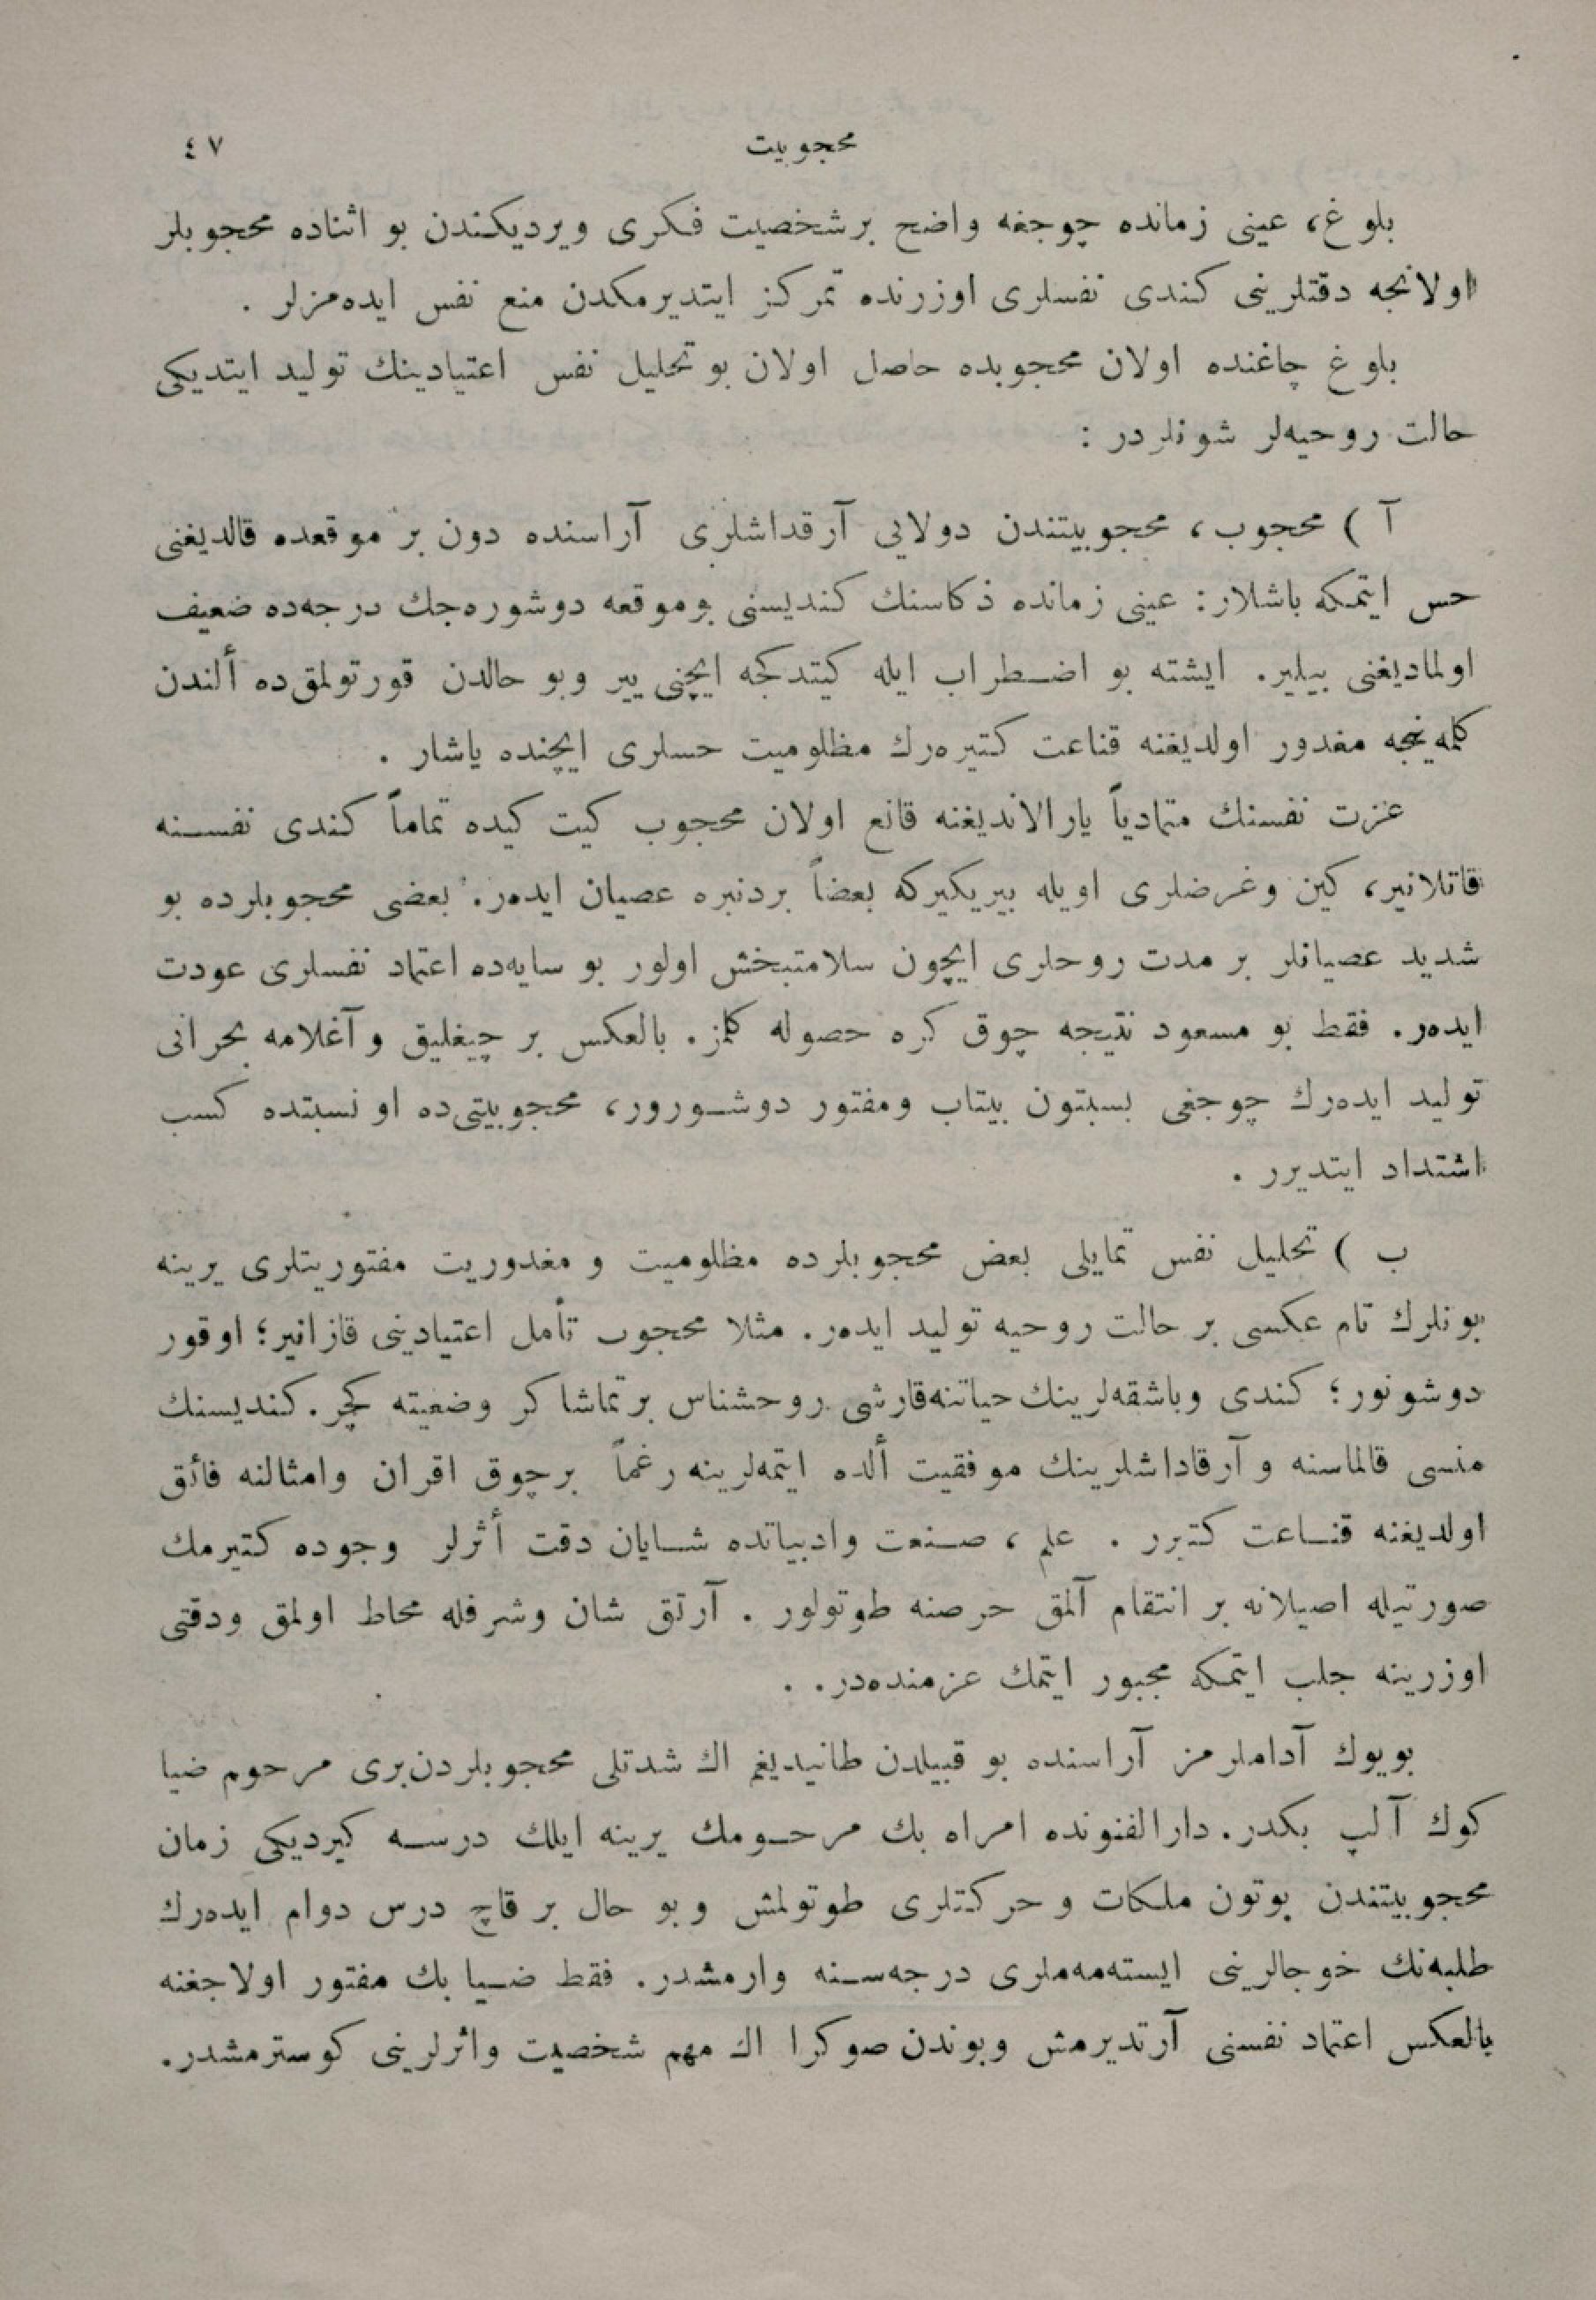 محجوبيت
٤٧
بلوغ، عينی زمانده چوجغه واضح برشخصيت فكری ويرديكندن بو اثناده محجوبلر
اولانجه دقتلرينی كندی نفسلری اوزرنده تمركز ايتديرمكدن منع نفس ايده‌مزلر .
بلوغ چاغنده اولان محجوبده حاصل اولان بو تحليل نفس اعتيادينك توليد ايتديكی
حالت روحيه‌لر شونلردر :
آ ) محجوب، محجوبيتندن دولايی آرقداشلری آراسنده دون بر موقعده قالديغنی
حس ايتمكه باشلار: عينی زمانده ذكاسنك كنديسنی بوموقعه دوشوره‌جك درجه‌ده ضعيف
اولماديغنی بيلير. ايشته بو اضطراب ايله كيتدكجه ايچنی يير وبو حالدن قورتولمق‌ده ألندن
كلمه‌ينجه مغدور اولديغنه قناعت كتيره‌رك مظلوميت حسلری ايچنده ياشار .
عزت نفسنك متمادياً يارالانديغنه قانع اولان محجوب كيت كيده تماماً كندی نفسنه
قاتلانير، كين وغرضلری اويله بيريكيركه بعضاً بردنبره عصيان ايده‌ر. بعضی محجوبلرده بو
شديد عصيانلر بر مدت روحلری ايچون سلامتبخش اولور بو سايه‌ده اعتماد نفسلری عودت
ايده‌ر. فقط بو مسعود نتيجه چوق كره حصوله كلمز. بالعكس بر چيغليق و آغلامه بحرانی
توليد ايده‌رك چوجغی بسبتون بيتاب ومفتور دوشورور، محجوبيتی‌ده او نسبتده كسب
اشتداد ايتديرر .
ب ) تحليل نفس تمايلی بعض محجوبلرده مظلوميت و مغدوريت مفتوريتلری يرينه
بونلرك تام عكسی بر حالت روحيه توليد ايده‌ر. مثلا محجوب تأمل اعتيادينی قازانير؛ اوقور
دوشونور؛ كندی وباشقه‌لرينك حياتنه‌قارشی روحشناس برتماشاكر وضعيته كچر. كنديسنك
منسی قالماسنه و آرقاداشلرينك موفقيت ألده ايتمه‌لرينه رغماً برچوق اقران وامثالنه فائق
اولديغنه قناعت كتيرر . علم ، صنعت وادبياتده شايان دقت أثرلر وجوده كتيرمك
صورتيله اصيلانه بر انتقام آلمق حرصنه طوتولور . آرتق شان وشرفله محاط اولمق ودقتی
اوزرينه جلب ايتمكه مجبور ايتمك عزمنده‌در. .
بويوك آداملرمز آراسنده بو قبيلدن طانيديغم اك شدتلی محجوبلردن‌بری مرحوم ضيا
كوك آلپ بكدر. دارالفنونده امراه بك مرحومك يرينه ايلك درسه كيرديكی زمان
محجوبيتندن بوتون ملكات و حركتلری طوتولمش وبو حال بر قاچ درس دوام ايده‌رك
طلبه‌نك خوجالرينی ايسته‌مه‌ملری درجه‌سنه وارمشدر. فقط ضيا بك مفتور اولاجغنه
بالعكس اعتماد نفسنی آرتديرمش وبوندن صوكرا اك مهم شخصيت واثرلرينی كوسترمشدر.